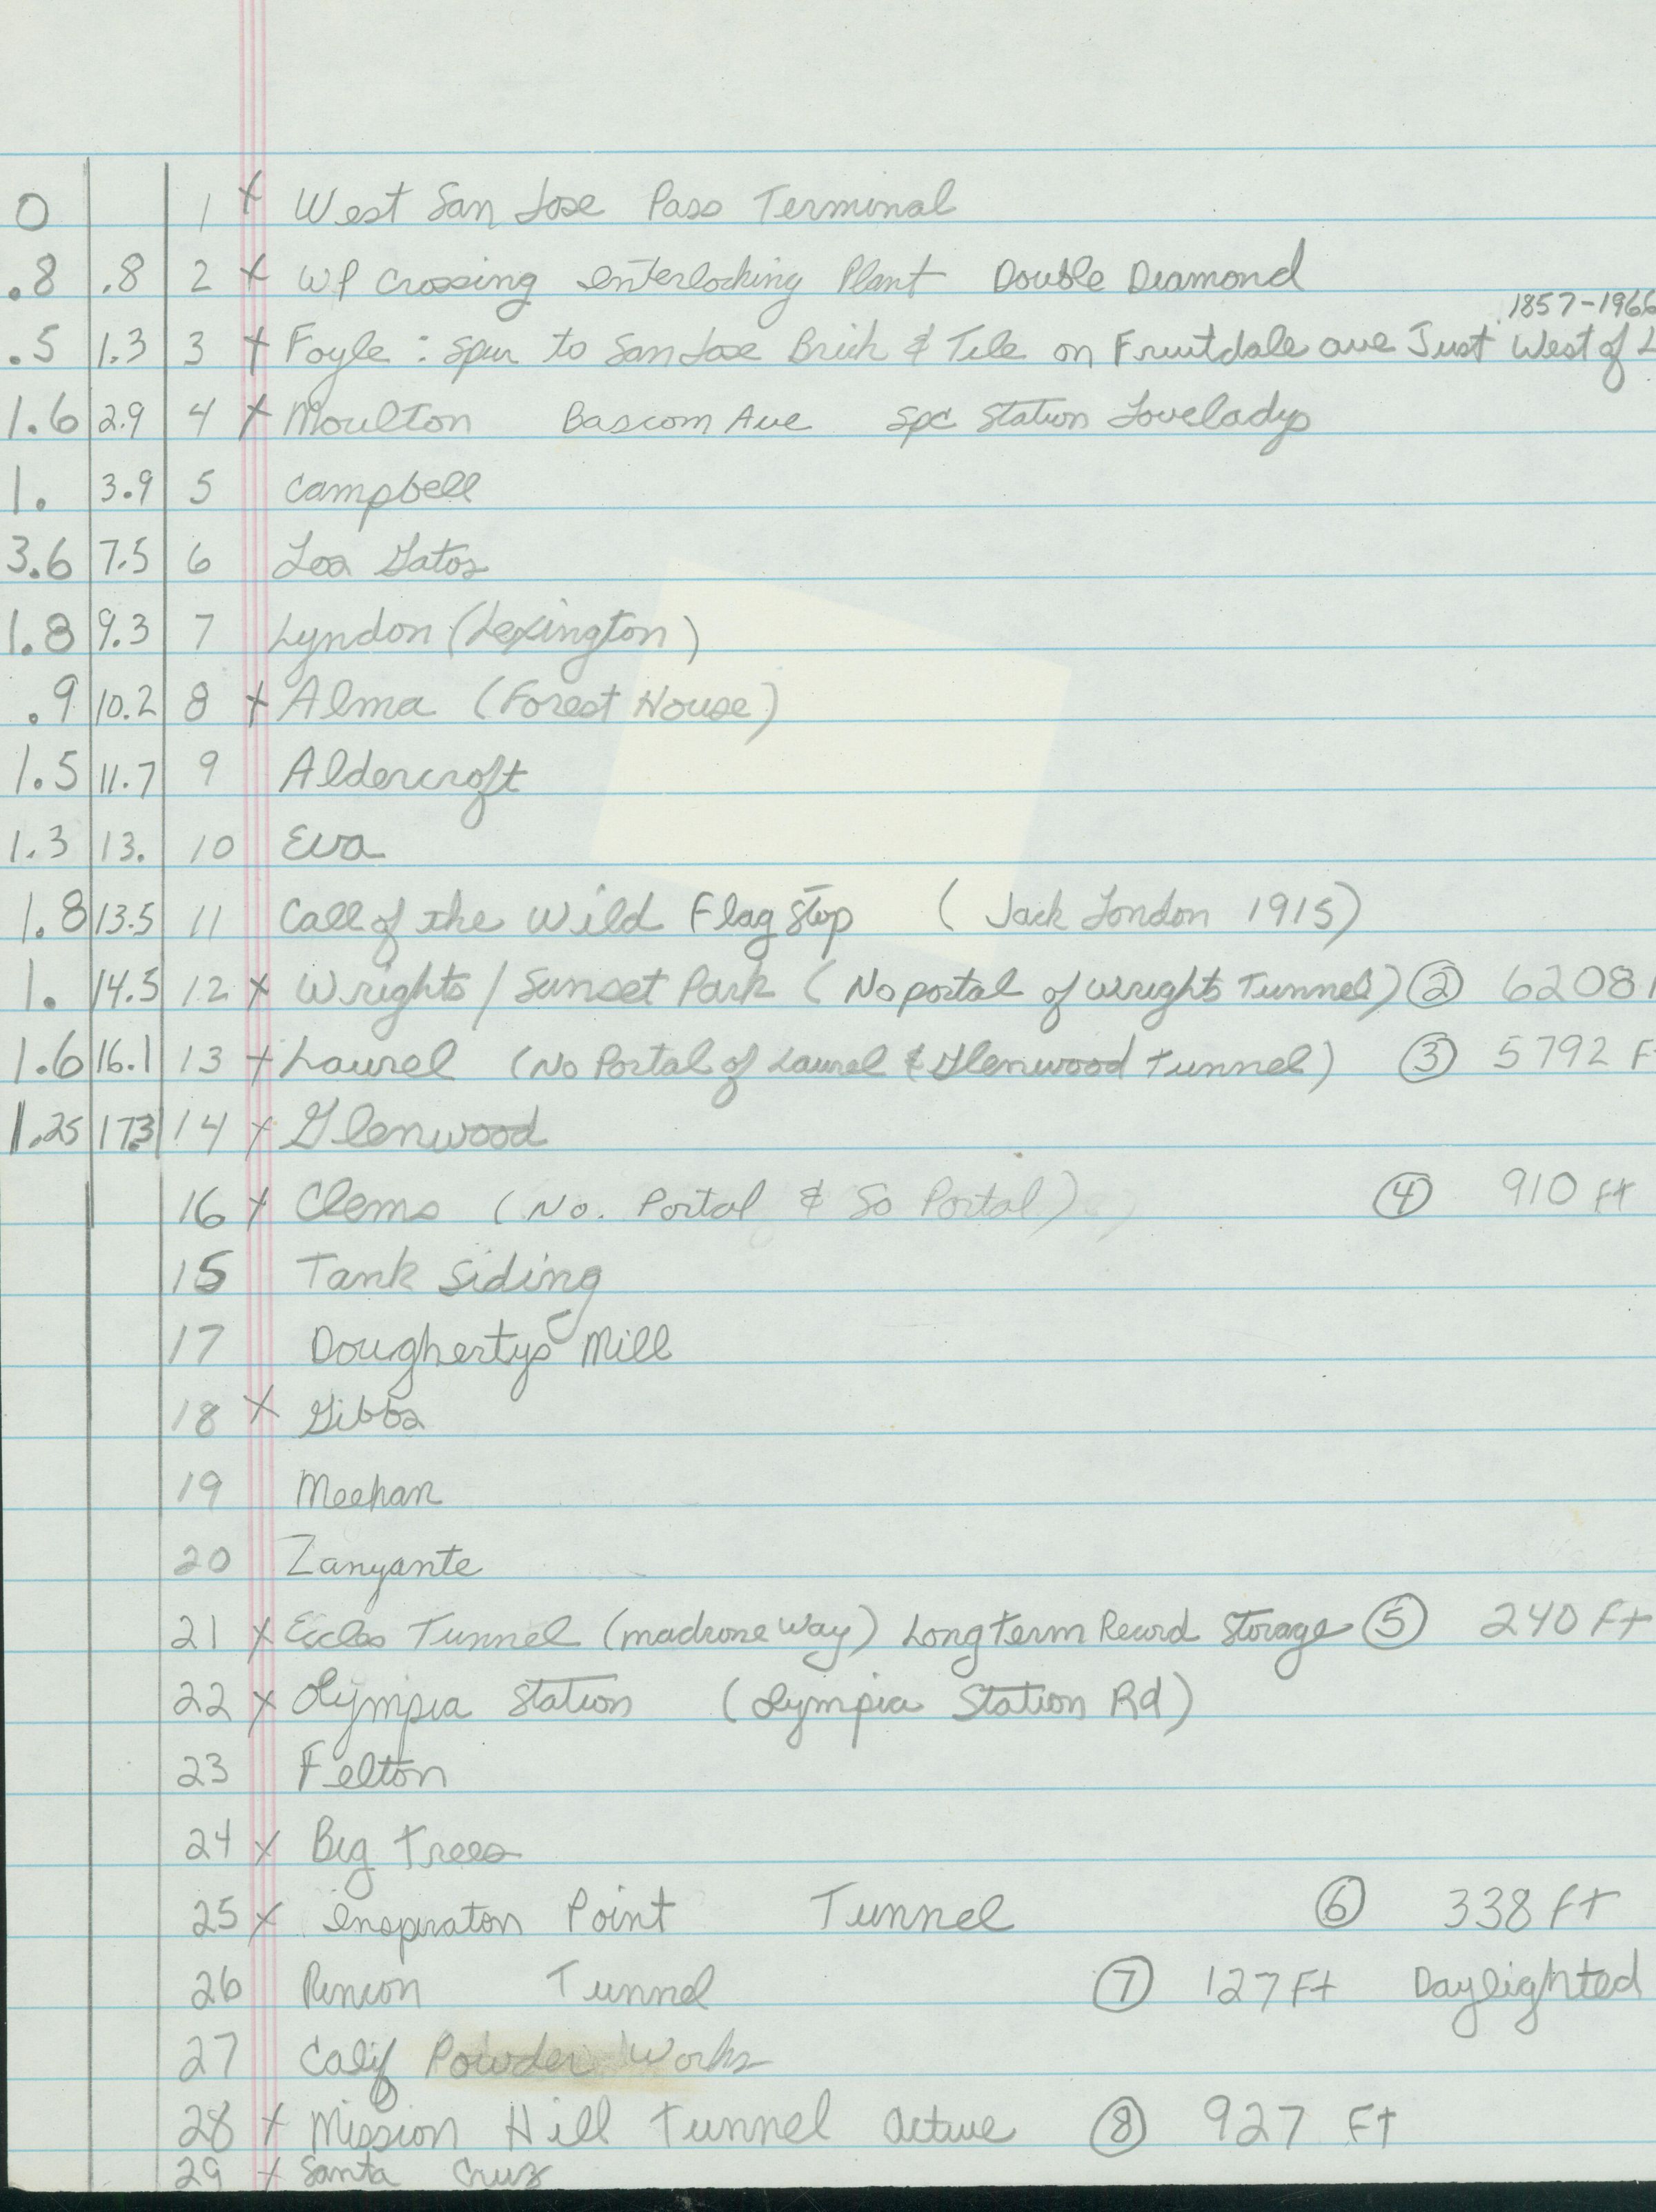 0 1 x West San Jose Pass Terminal
.8 .8 2 x WP Crossing Interlocking Plant Double Diamond
1857-1966
.5 1.3 3 x Foyle : Spur to San Jose Brick & Tile on Fruitdale ave Just West of L
1.6 2.9 4 x Moulton Bascom Ave Spc Station Lovelady
1. 3.9 5 Campbell
3.6 7.5 6 Los Gatos
1.8 9.3 7 Lyndon (Lexington)
.9 10.2 8 x Alma (Forest House)
1.5 11.7 9 Aldercroft
1.3 13. 10 Eva
1.8 13.5 11 Call of the Wild Flag Stop ( Jack London 1915)
1. 14.5 12 x Wrights / Sunset Park ( No portal of Wrights Tunnel) ② 6208
1.6 16.1 13 x Laurel (No Portal of Laurel & Glenwood Tunnel) ③ 5792 F
1.25 17.3 14 x Glenwood
16 x Clems (No. Portal & So Portal) ④ 910 Ft
15 Tank Siding
17 Doughertys Mill
18 x Gibbs
19 Meehan
20 Zanyante
21 x Eccles Tunnel (madrone Way) Long Term Record Storage ⑤ 240 Ft
22 x Olympia Station (Olympia Station Rd)
23 Felton
24 x Big Trees
25 x Inspiraton Point Tunnel ⑥ 338 Ft
26 Rincon Tunnel ⑦ 127 Ft Daylighted
27 Calif Powder Works
28 x Mission Hill Tunnel Active ⑧ 927 Ft
29 x Santa Cruz